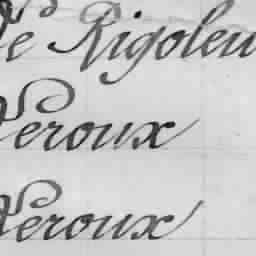 Le Rigoleu
Leroux
Leroux